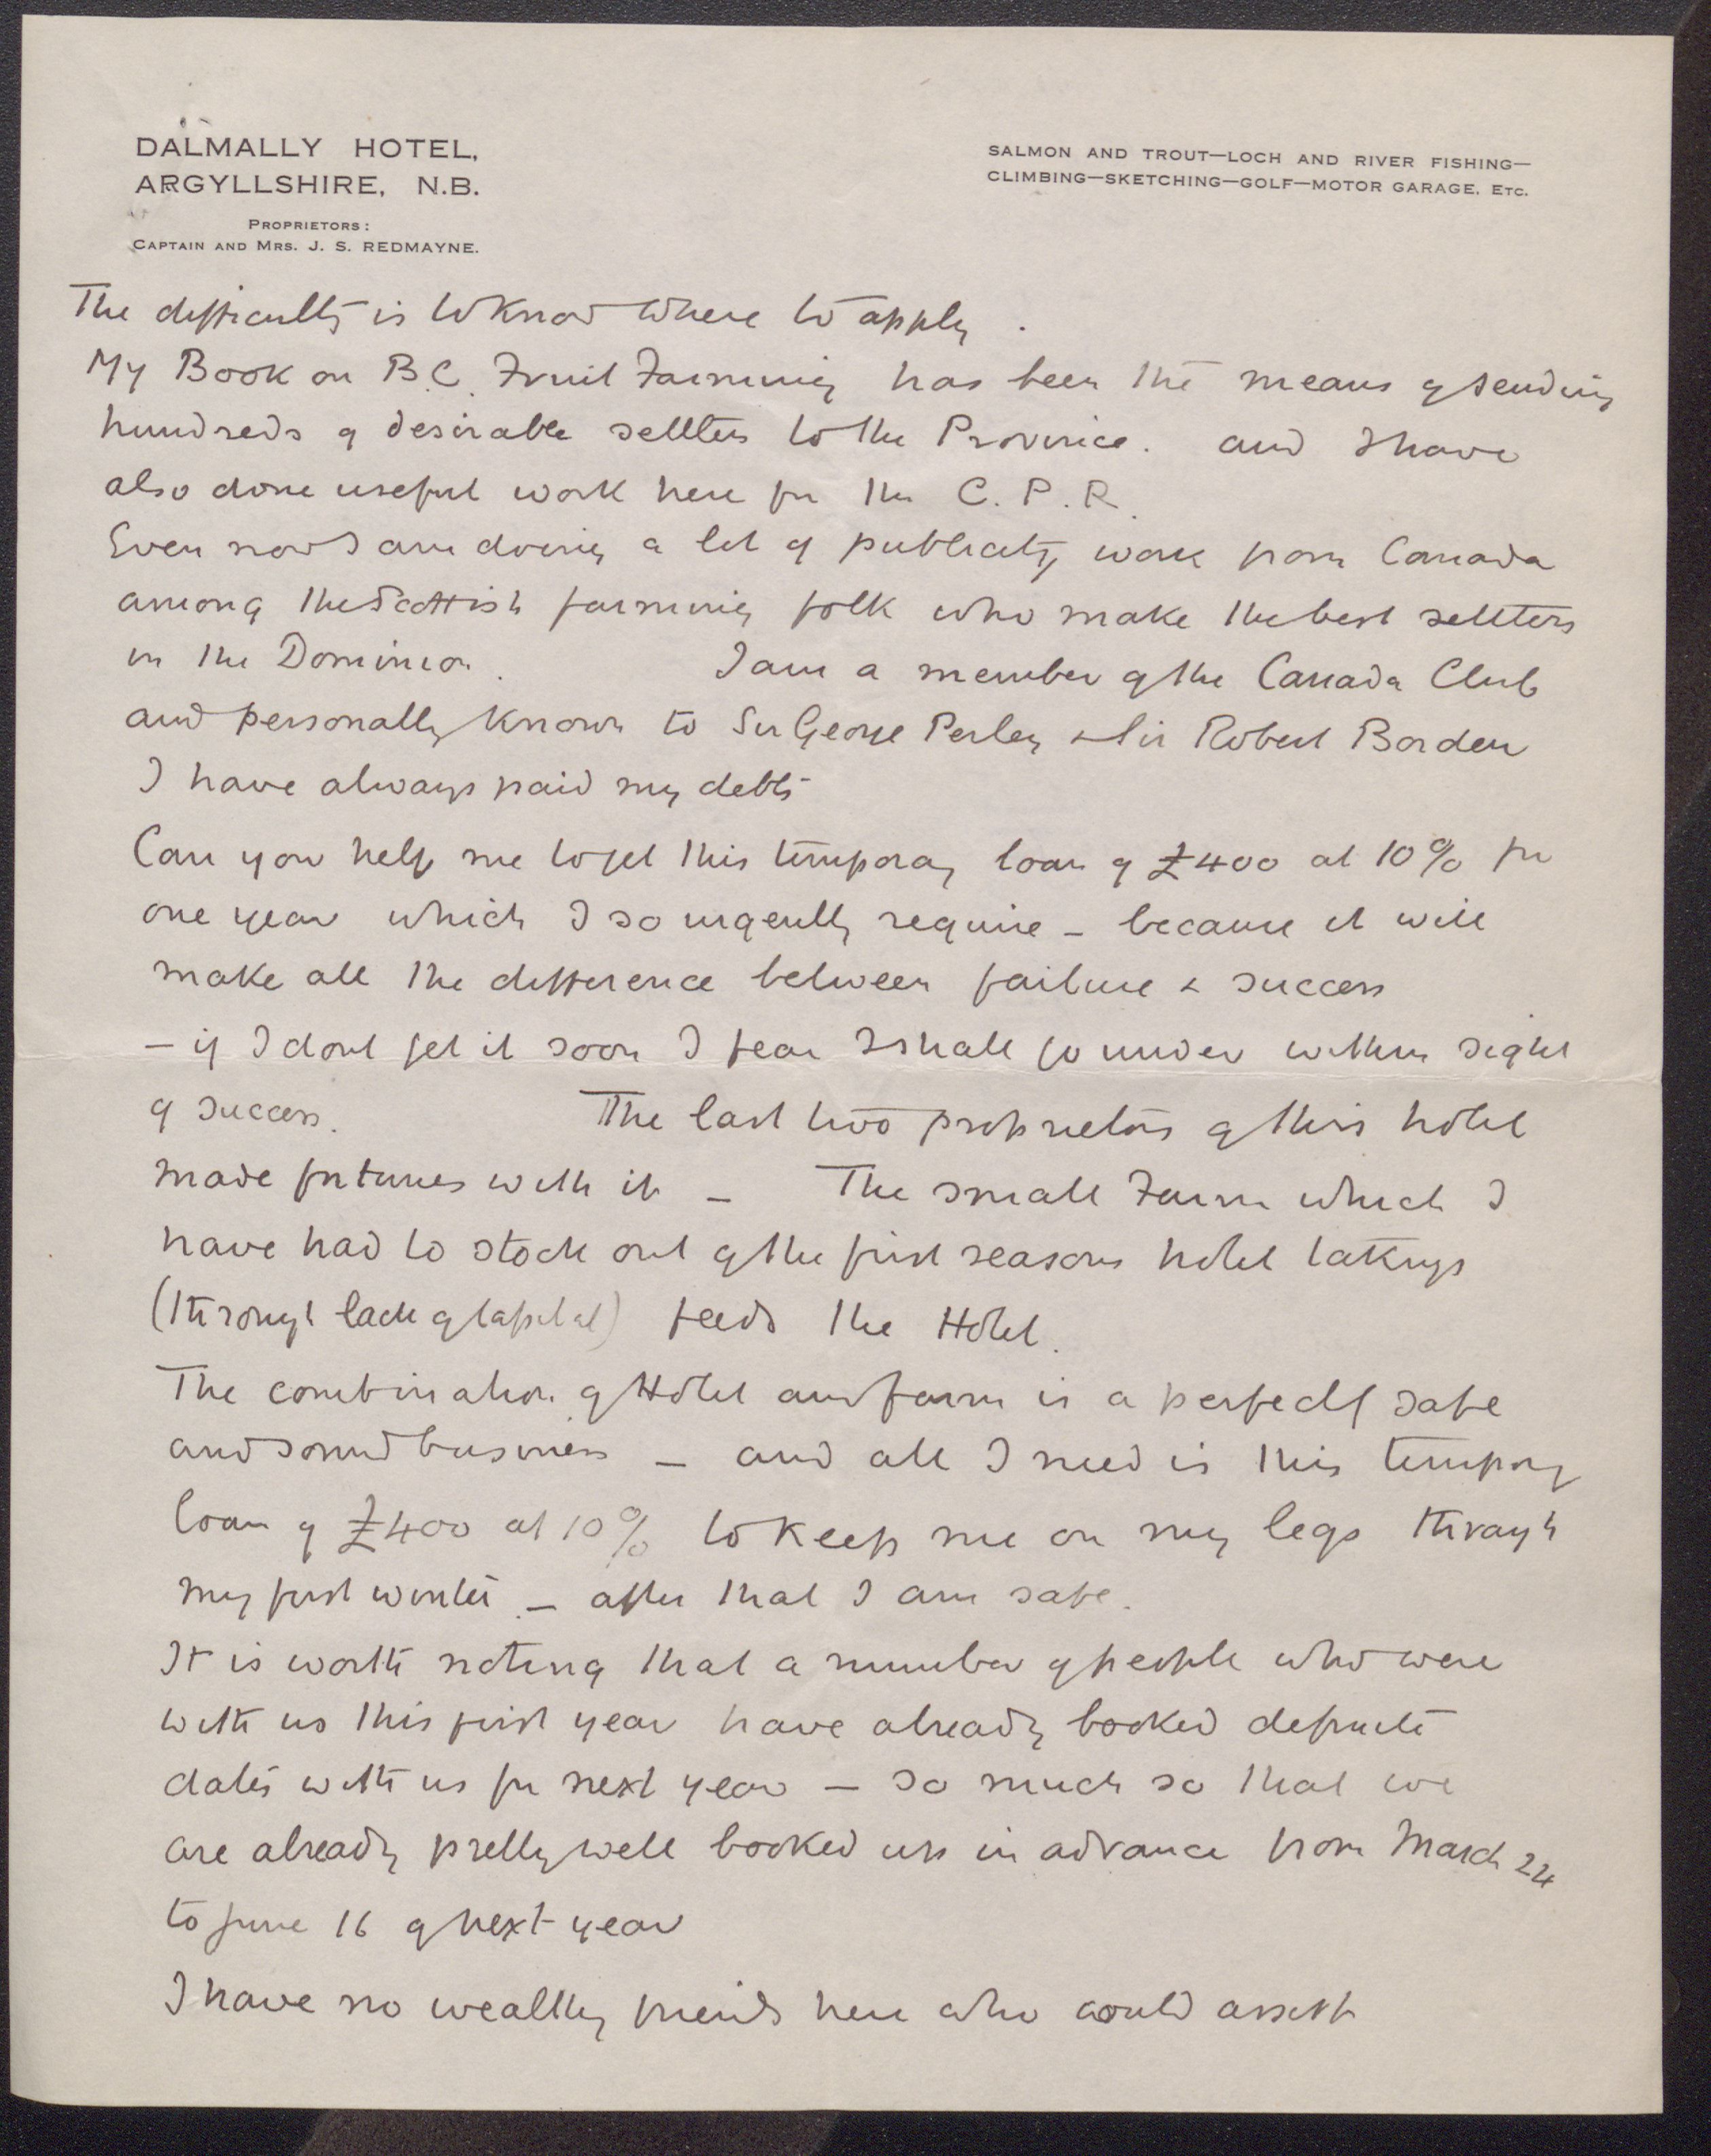 DALMALLY HOTEL,
ARGYLLSHIRE, N.B.
PROPRIETORS:
CAPTAIN AND MRS. J. S. REDMAYNE.
SALMON AND TROUT—LOCH AND RIVER FISHING—
CLIMBING—SKETCHING—GOLF—MOTOR GARAGE. ETC.
The difficulty is to know where to apply.
My Book on B.C. Fruit Farming has been the means of sending
hundreds of desirable settlers to the Province. and I have
also done useful work here for the C.P.R.
Even now I am doing a lot of publicity work from Canada
among the Scottish farming folk who make the best settlers
in the Dominion. I am a member of the Canada Club
and personally known to Sir George Perley & Sir Robert Borden
I have always paid my debts
Can you help me to get this temporary loan of £400 at 10% for
one year which I so urgently require – because it will
make all the difference between failure & success
– if I dont get it soon I fear I shall go under within sight
of success. The last two proprietors of this hotel
made fortunes with it – The small Farm which I
have had to stock out of the first seasons hotel takings
(through lack of capital) feeds the Hotel.
The combination of Hotel and farm is a perfectly safe
and sound business – and all I need is this temporary
loan of £400 at 10% to keep me on my legs through
my first winter – after that I am safe.
It is worth noting that a number of people who were
with us this first year have already booked definite
dates with us for next year – so much so that we
are already pretty well booked up in advance from March 24
to June 16 of next year
I have no wealthy friends here who could assist